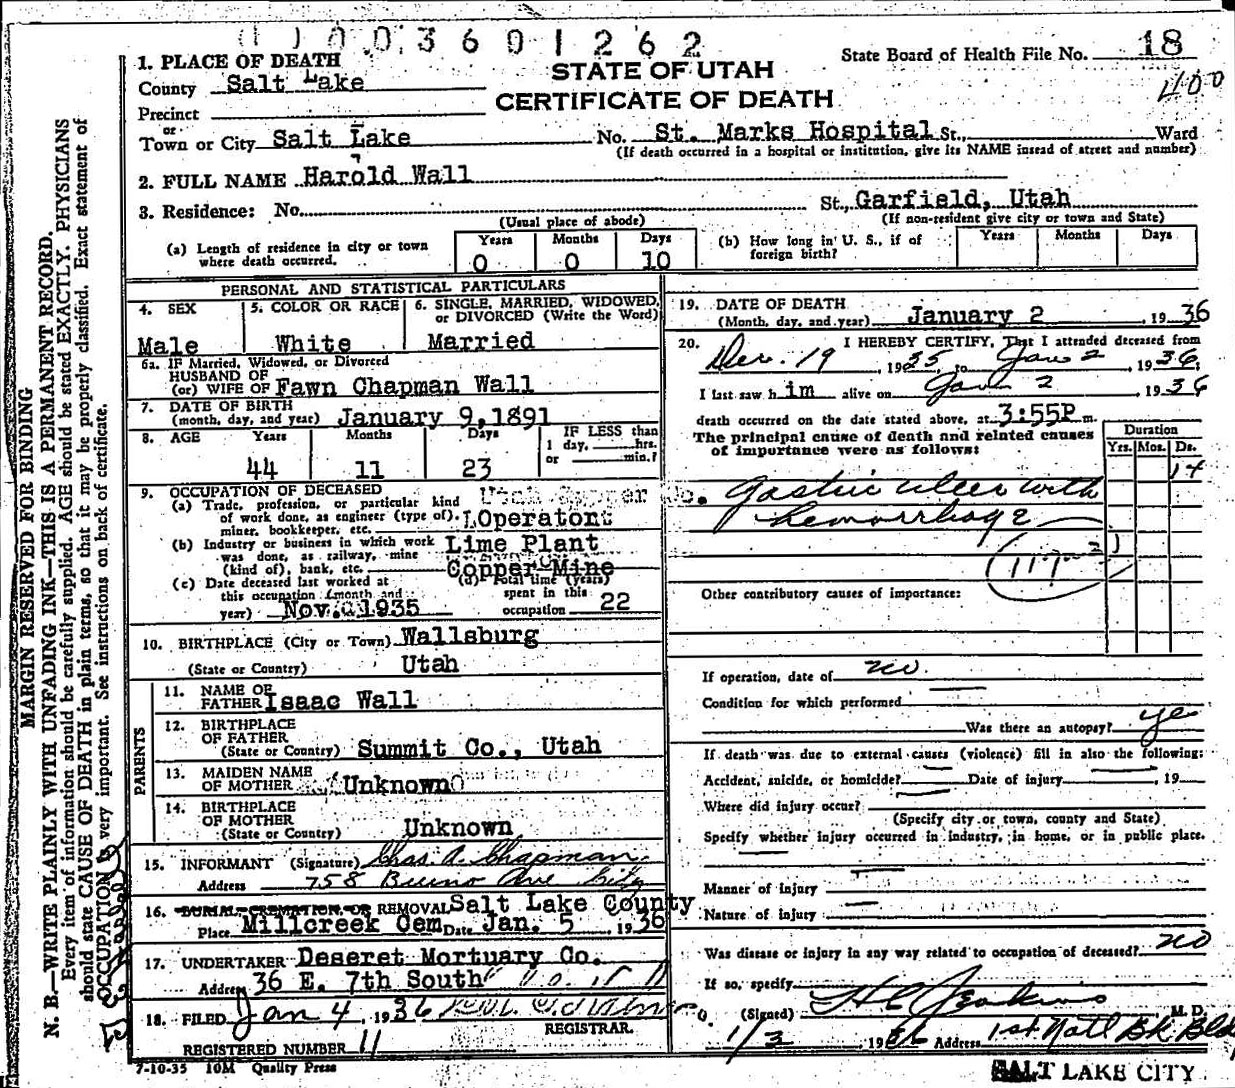 003601262
State Board of Health File No. 18
400
1. PLACE OF DEATH
STATE OF UTAH
County Salt Lake
CERTIFICATE OF DEATH
Precinct
or
Town or City Salt Lake No. St. Marks Hospital St., Ward
(If death occurred in a hospital or institution, give its NAME insead of street and number)
2. FULL NAME Harold Wall
3. Residence: No. St., Garfield, Utah
(Usual place of abode) (If non-resident give city or town and State)
(a) Length of residence in city or town where death occurred. Years 0 Months 0 Days 10
(b) How long in U. S., if of foreign birth? Years Months Days
PERSONAL AND STATISTICAL PARTICULARS
4. SEX Male
5. COLOR OR RACE White
6. SINGLE, MARRIED, WIDOWED, or DIVORCED (Write the Word) Married
6a. IF Married, Widowed, or Divorced
HUSBAND OF
(or) WIFE OF Fawn Chapman Wall
7. DATE OF BIRTH
(month, day, and year) January 9, 1891
8. AGE Years 44 Months 11 Days 23
IF LESS than
1 day, hrs.
or min.?
9. OCCUPATION OF DECEASED
(a) Trade, profession, or particular kind
of work done, as engineer (type of),
miner, bookkeeper, etc. Operator
(b) Industry or business in which work Lime Plant
was done, as railway, mine
(kind of), bank, etc. Copper Mine
(c) Date deceased last worked at
this occupation (month and
year) Nov. 1935
(d) Total time (years)
spent in this
occupation 22
10. BIRTHPLACE (City or Town) Wallsburg
(State or Country) Utah
PARENTS
11. NAME OF
FATHER Isaac Wall
12. BIRTHPLACE
OF FATHER
(State or Country) Summit Co., Utah
13. MAIDEN NAME
OF MOTHER Unknown
14. BIRTHPLACE
OF MOTHER
(State or Country) Unknown
15. INFORMANT (Signature) Chas. A. Chapman
Address 758 Bueno Ave City
16. BURIAL, CREMATION, OR REMOVAL Salt Lake County
Place Millcreek Cem Date Jan. 5, 1936
17. UNDERTAKER Deseret Mortuary Co.
Address 36 E. 7th South
18. FILED Jan 4, 1936
REGISTRAR.
REGISTERED NUMBER 11
7-10-35 10M Quality Press
19. DATE OF DEATH
(Month, day, and year) January 2, 1936
20. I HEREBY CERTIFY, That I attended deceased from
Dec. 19, 1935, to Jan 2, 1936,
I last saw him alive on Jan 2, 1936
death occurred on the date stated above, at 3:55P m.
The principal cause of death and related causes
of importance were as follows:
Duration
Yrs. Mos. Ds.
14
Gastric ulcer with
hemorrhage
117
Other contributory causes of importance:
If operation, date of no
Condition for which performed
Was there an autopsy? yes
If death was due to external causes (violence) fill in also the following:
Accident, suicide, or homicide? Date of injury , 19
Where did injury occur?
(Specify city or town, county and State)
Specify whether injury occurred in industry, in home, or in public place.
Manner of injury
Nature of injury
Was disease or injury in any way related to occupation of deceased? no
If so, specify
(Signed) H C Jenkins M. D.
1/3 1936 Address 1st Natl Bk Bld
SALT LAKE CITY
MARGIN RESERVED FOR BINDING
N. B.—WRITE PLAINLY WITH UNFADING INK—THIS IS A PERMANENT RECORD.
Every item of information should be carefully supplied. AGE should be stated EXACTLY. PHYSICIANS
should state CAUSE OF DEATH in plain terms, so that it may be properly classified. Exact statement of
OCCUPATION is very important. See instructions on back of certificate.